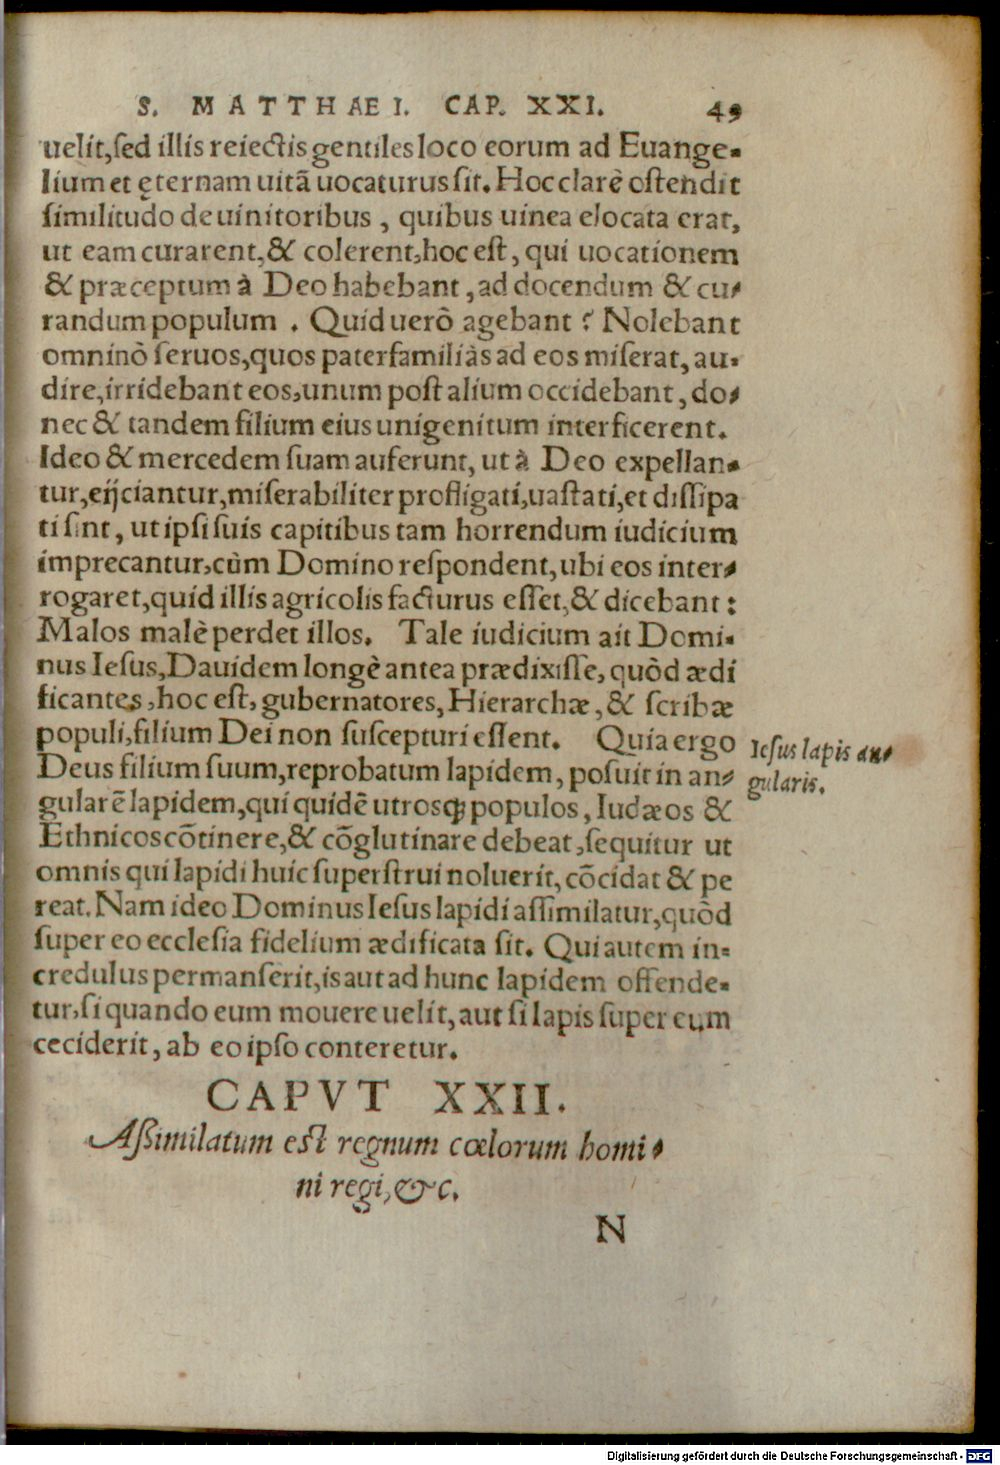 S. MATTHAEI. CAP. XXI. 49
uelit, ſed illis reiectis gentiles loco eorum ad Euange-
lium et ęternam uitã uocaturus ſit. Hoc clarè oſtendit
ſimilitudo de uinitoribus, quibus uinea elocata erat,
ut eam curarent, & colerent, hoc eſt, qui uocationem
& præceptum à Deo habebant, ad docendum & cu-
randum populum. Quid uerò agebant? Nolebant
omninò ſeruos, quos paterfamiliàs ad eos miſerat, au-
dire, irridebant eos, unum poſt alium occidebant, do-
nec & tandem filium eius unigenitum interficerent.
Ideo & mercedem ſuam auferunt, ut à Deo expellan-
tur, eijciantur, miſerabiliter profligati, uaſtati, et diſſipa
ti ſint, ut ipſi ſuis capitibus tam horrendum iudicium
imprecantur, cùm Domino reſpondent, ubi eos inter-
rogaret, quid illis agricolis facturus eſſet, & dicebant:
Malos malè perdet illos. Tale iudicium ait Domi-
nus Ieſus, Dauidem longè antea prædixiſſe, quòd ædi
ficantes, hoc eſt, gubernatores, Hierarchæ, & ſcribæ
populi, filium Dei non ſuſcepturi eſſent. Quia ergo
Ieſus lapis an-
Deus filium ſuum, reprobatum lapidem, poſuit in an-
gularis.
gularẽ lapidem, qui quidẽ utrosq; populos, Iudæos &
Ethnicos cõtinere, & cõglutinare debeat, ſequitur ut
omnis qui lapidi huic ſuperſtrui noluerit, cõcidat & pe
reat. Nam ideo Dominus Ieſus lapidi aſſimilatur, quòd
ſuper eo eccleſia fidelium ædificata ſit. Qui autem in-
credulus permanſerit, is aut ad hunc lapidem offende-
tur, ſi quando eum mouere uelit, aut ſi lapis ſuper eum
ceciderit, ab eo ipſo conteretur.
CAPVT XXII.
Aßimilatum eſt regnum cœlorum homi-
ni regi, &c.
N
Digitalisierung gefördert durch die Deutsche Forschungsgemeinschaft - DFG